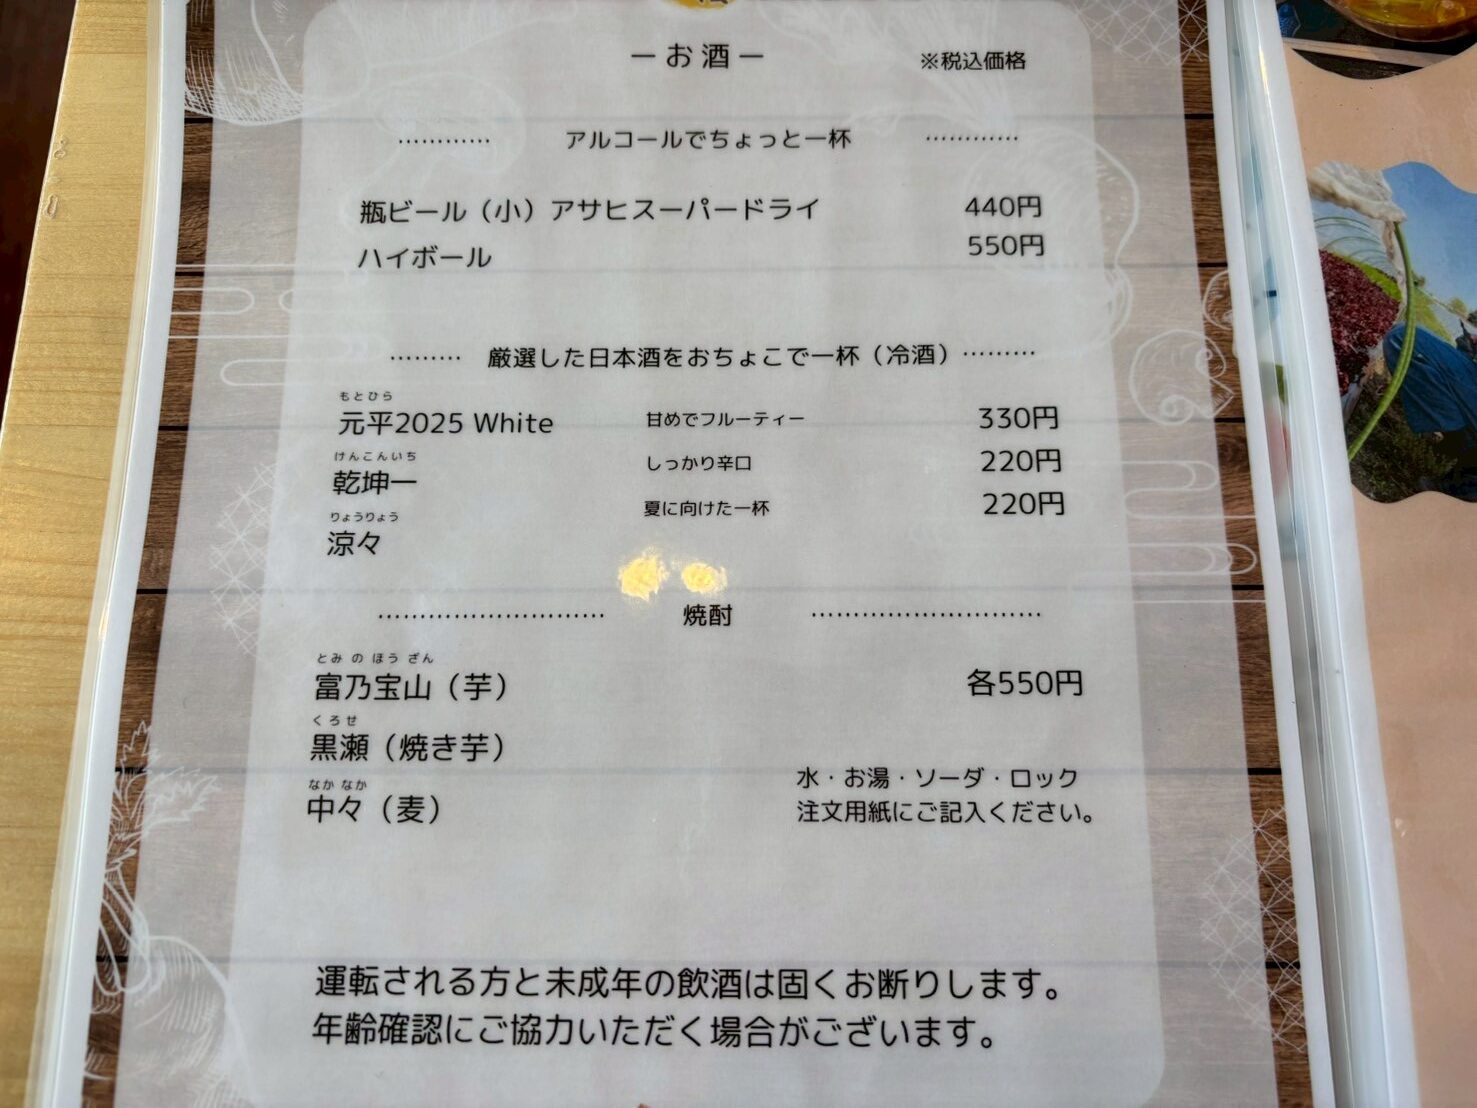 ーお酒ー
※税込価格
………… アルコールでちょっと一杯 …………
瓶ビール（小）アサヒスーパードライ 440円
ハイボール 550円
……… 厳選した日本酒をおちょこで一杯（冷酒）………
もとひら
元平2025 White 甘めでフルーティー 330円
けんこんいち
乾坤一 しっかり辛口 220円
りょうりょう
涼々 夏に向けた一杯 220円
……………………… 焼酎 ………………………
とみ の ほう ざん
富乃宝山（芋） 各550円
くろせ
黒瀬（焼き芋）
なか なか
中々（麦）
水・お湯・ソーダ・ロック
注文用紙にご記入ください。
運転される方と未成年の飲酒は固くお断りします。
年齢確認にご協力いただく場合がございます。